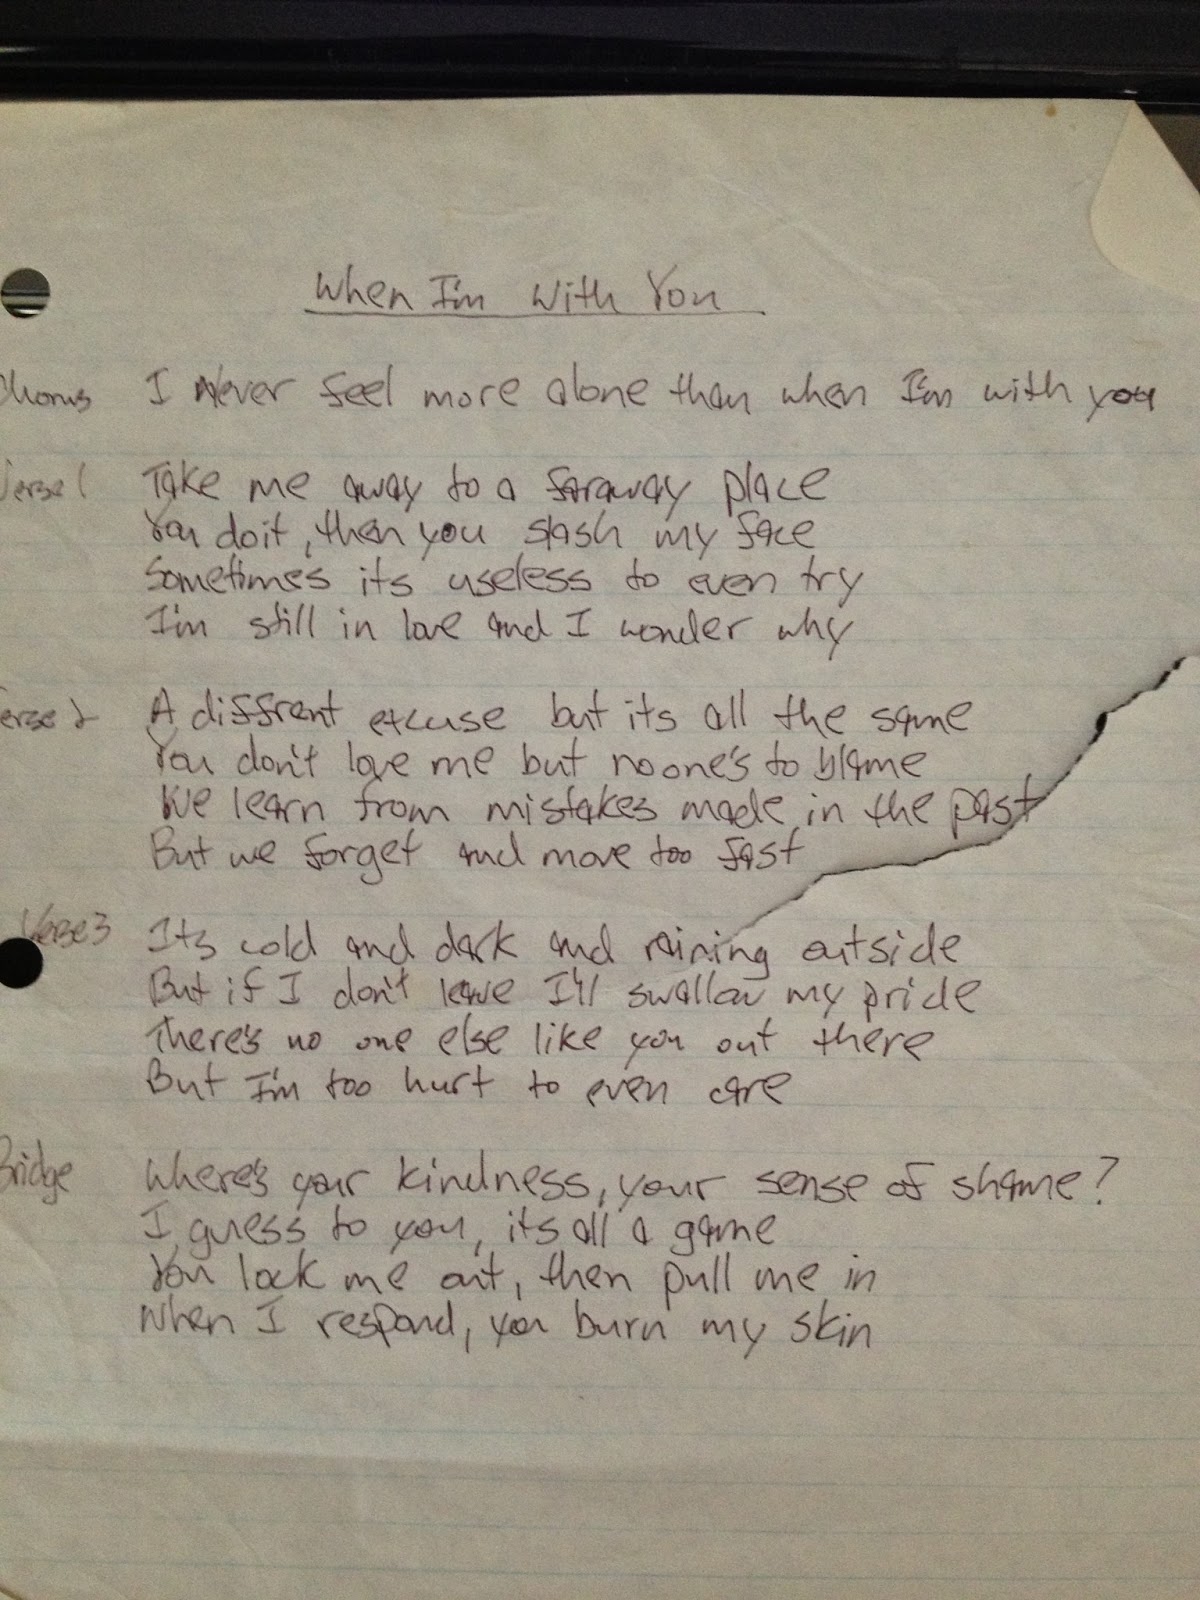 When I'm With You
Chorus I Never feel more alone than when I'm with you
Verse 1 Take me away to a faraway place
You do it, then you slash my face
Sometimes its useless to even try
I'm still in love and I wonder why
Verse 2 A diffrent excuse but its all the same
You don't love me but no one's to blame
We learn from mistakes made in the past
But we forget and move too fast
Verse 3 Its cold and dark and raining outside
But if I don't leave I'll swallow my pride
There's no one else like you out there
But I'm too hurt to even care
Bridge Where's your kindness, your sense of shame?
I guess to you, its all a game
You lock me out, then pull me in
When I respond, you burn my skin